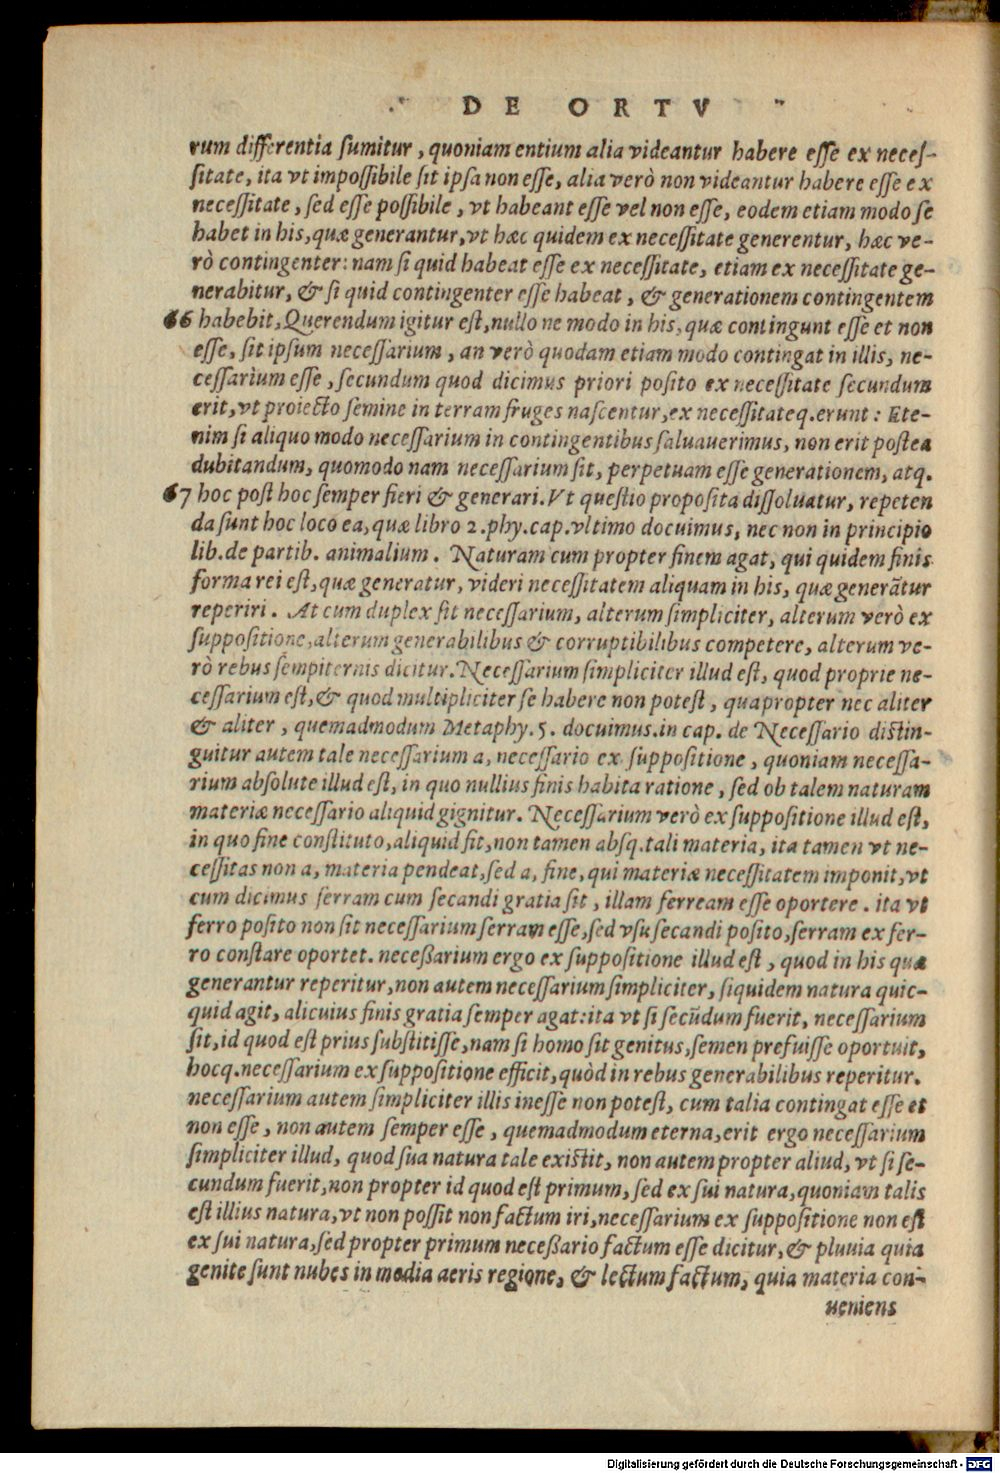 DE ORTV
rum differentia sumitur, quoniam entium alia videantur habere esse ex neces-
sitate, ita vt impossibile sit ipsa non esse, alia verò non videantur habere esse ex
necessitate, sed esse possibile, vt habeant esse vel non esse, eodem etiam modo se
habet in his, quæ generantur, vt hæc quidem ex necessitate generentur, hæc ve-
rò contingenter: nam si quid habeat esse ex necessitate, etiam ex necessitate ge-
nerabitur, & si quid contingenter esse habeat, & generationem contingentem
66 habebit, Querendum igitur est, nullo ne modo in his, quæ contingunt esse et non
esse, sit ipsum necessarium, an verò quodam etiam modo contingat in illis, ne-
cessarium esse, secundum quod dicimus priori posito ex necessitate secundum
erit, vt proiecto semine in terram fruges nascentur, ex necessitateq. erunt: Ete-
nim si aliquo modo necessarium in contingentibus saluauerimus, non erit postea
dubitandum, quomodo nam necessarium sit, perpetuam esse generationem, atq.
67 hoc post hoc semper fieri & generari. Vt questio proposita dissoluatur, repeten
da sunt hoc loco ea, quæ libro 2. phy. cap. vltimo docuimus, nec non in principio
lib. de partib. animalium. Naturam cum propter finem agat, qui quidem finis
forma rei est, quæ generatur, videri necessitatem aliquam in his, quæ generãtur
reperiri. At cum duplex sit necessarium, alterum simpliciter, alterum verò ex
suppositione, alterum generabilibus & corruptibilibus competere, alterum ve-
rò rebus sempiternis dicitur. Necessarium simpliciter illud est, quod proprie ne-
cessarium est, & quod multipliciter se habere non potest, quapropter nec aliter
& aliter, quemadmodum Metaphy. 5. docuimus. in cap. de Necessario distin-
guitur autem tale necessarium a, necessario ex suppositione, quoniam necessa-
rium absolute illud est, in quo nullius finis habita ratione, sed ob talem naturam
materiæ necessario aliquid gignitur. Necessarium verò ex suppositione illud est,
in quo fine constituto, aliquid fit, non tamen absq. tali materia, ita tamen vt ne-
cessitas non a, materia pendeat, sed a, fine, qui materiæ necessitatem imponit, vt
cum dicimus serram cum secandi gratia sit, illam ferream esse oportere. ita vt
ferro posito non sit necessarium serram esse, sed vsu secandi posito, serram ex fer-
ro constare oportet. neceßarium ergo ex suppositione illud est, quod in his quæ
generantur reperitur, non autem necessarium simpliciter, siquidem natura quic-
quid agit, alicuius finis gratia semper agat: ita vt si secũdum fuerit, necessarium
sit, id quod est prius substitisse, nam si homo sit genitus, semen prefuisse oportuit,
hocq. necessarium ex suppositione efficit, quòd in rebus generabilibus reperitur.
necessarium autem simpliciter illis inesse non potest, cum talia contingat esse et
non esse, non autem semper esse, quemadmodum eterna, erit ergo necessarium
simpliciter illud, quod sua natura tale existit, non autem propter aliud, vt si se-
cundum fuerit, non propter id quod est primum, sed ex sui natura, quoniam talis
est illius natura, vt non possit non factum iri, necessarium ex suppositione non est
ex sui natura, sed propter primum neceßario factum esse dicitur, & pluuia quia
genite sunt nubes in media aeris regione, & lectum factum, quia materia con-
ueniens
Digitalisierung gefördert durch die Deutsche Forschungsgemeinschaft - DFG